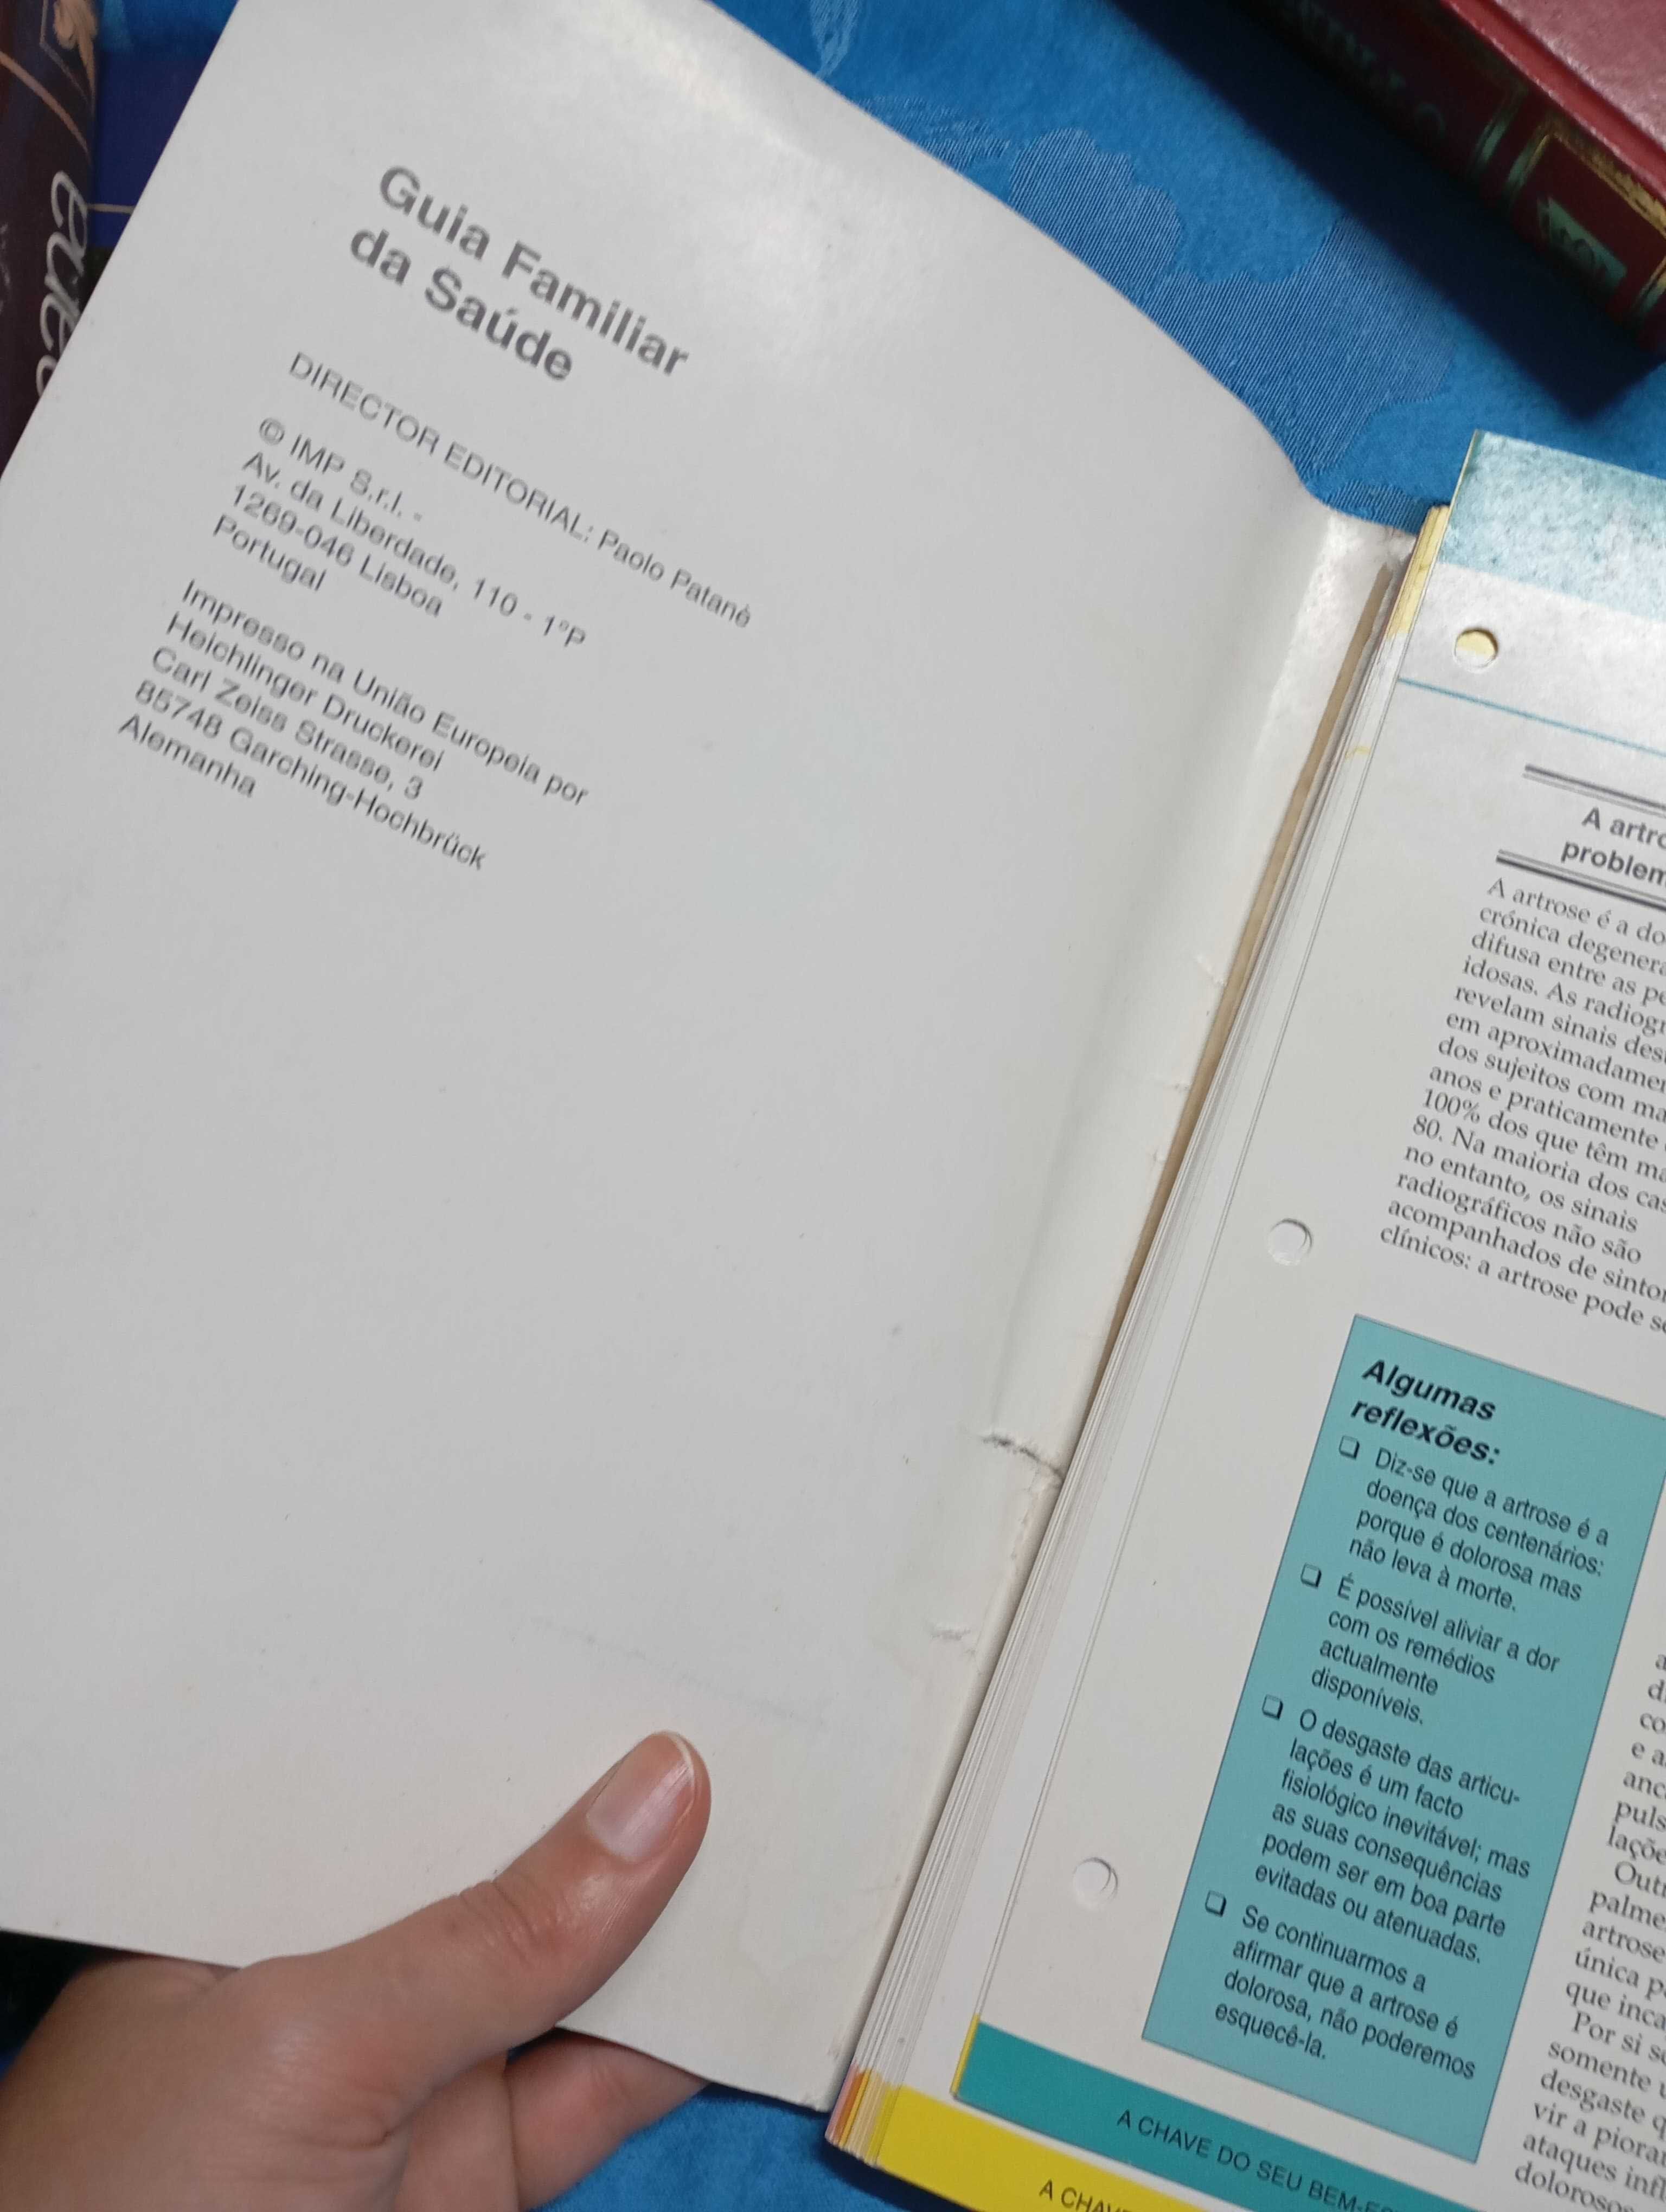 Guia Familiar
da Saúde
DIRECTOR EDITORIAL: Paolo Patanè
© IMP S.r.l. -
Av. da Liberdade, 110 - 1ºP
1269-046 Lisboa
Portugal
Impresso na União Europeia por
Heichlinger Druckerei
Carl Zeiss Strasse, 3
85748 Garching-Hochbrück
Alemanha
A
problem
A artrose é a
crónica
difusa entre as
idosas. As
revelam sinais
em
dos sujeitos com
anos e praticamente
100% dos que têm
80. Na maioria dos
no entanto, os sinais
radiográficos não são
acompanhados de
clínicos: a artrose pode
Algumas
reflexões:
❏ Diz-se que a artrose é a
doença dos centenários:
porque é dolorosa mas
não leva à morte.
❏ É possível aliviar a dor
com os remédios
actualmente
disponíveis.
❏ O desgaste das articu-
lações é um facto
fisiológico inevitável; mas
as suas consequências
podem ser em boa parte
evitadas ou atenuadas.
❏ Se continuarmos a
afirmar que a artrose é
dolorosa, não poderemos
esquecê-la.
e
artrose
única
que
Por si
somente
desgaste
vir a
ataques
A CHAVE DO SEU
A